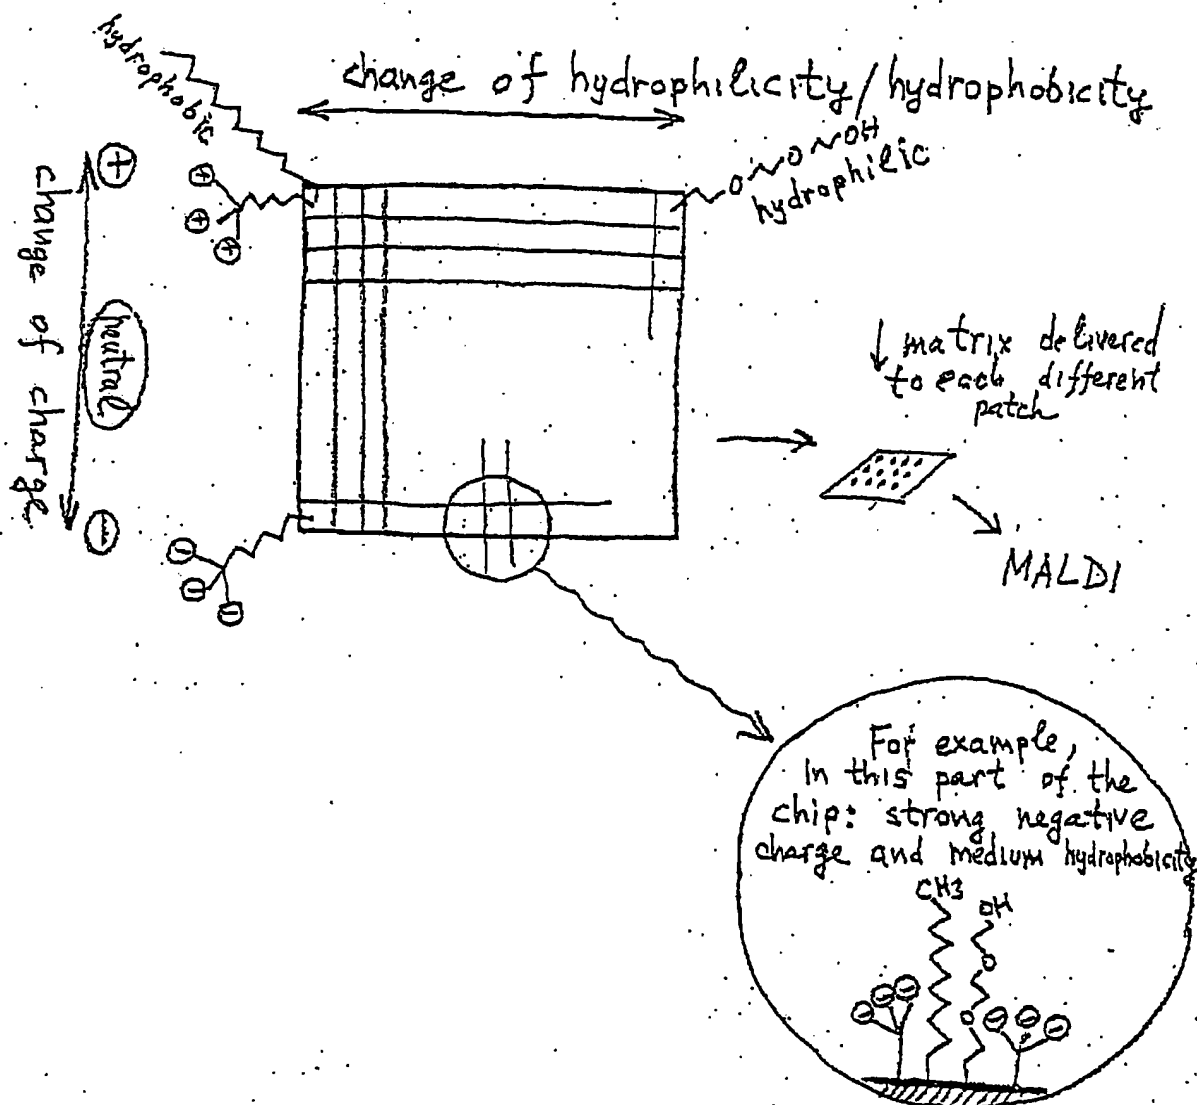 change of hydrophilicity/hydrophobicity
hydrophobic
O O OH
hydrophilic
+
+
+
+
change of charge
neutral
−
−
−
−
↓ matrix delivered
to each different
patch
MALDI
For example,
in this part of the
chip: strong negative
charge and medium hydrophobicity
CH3
OH
O
O
− − −
− − −